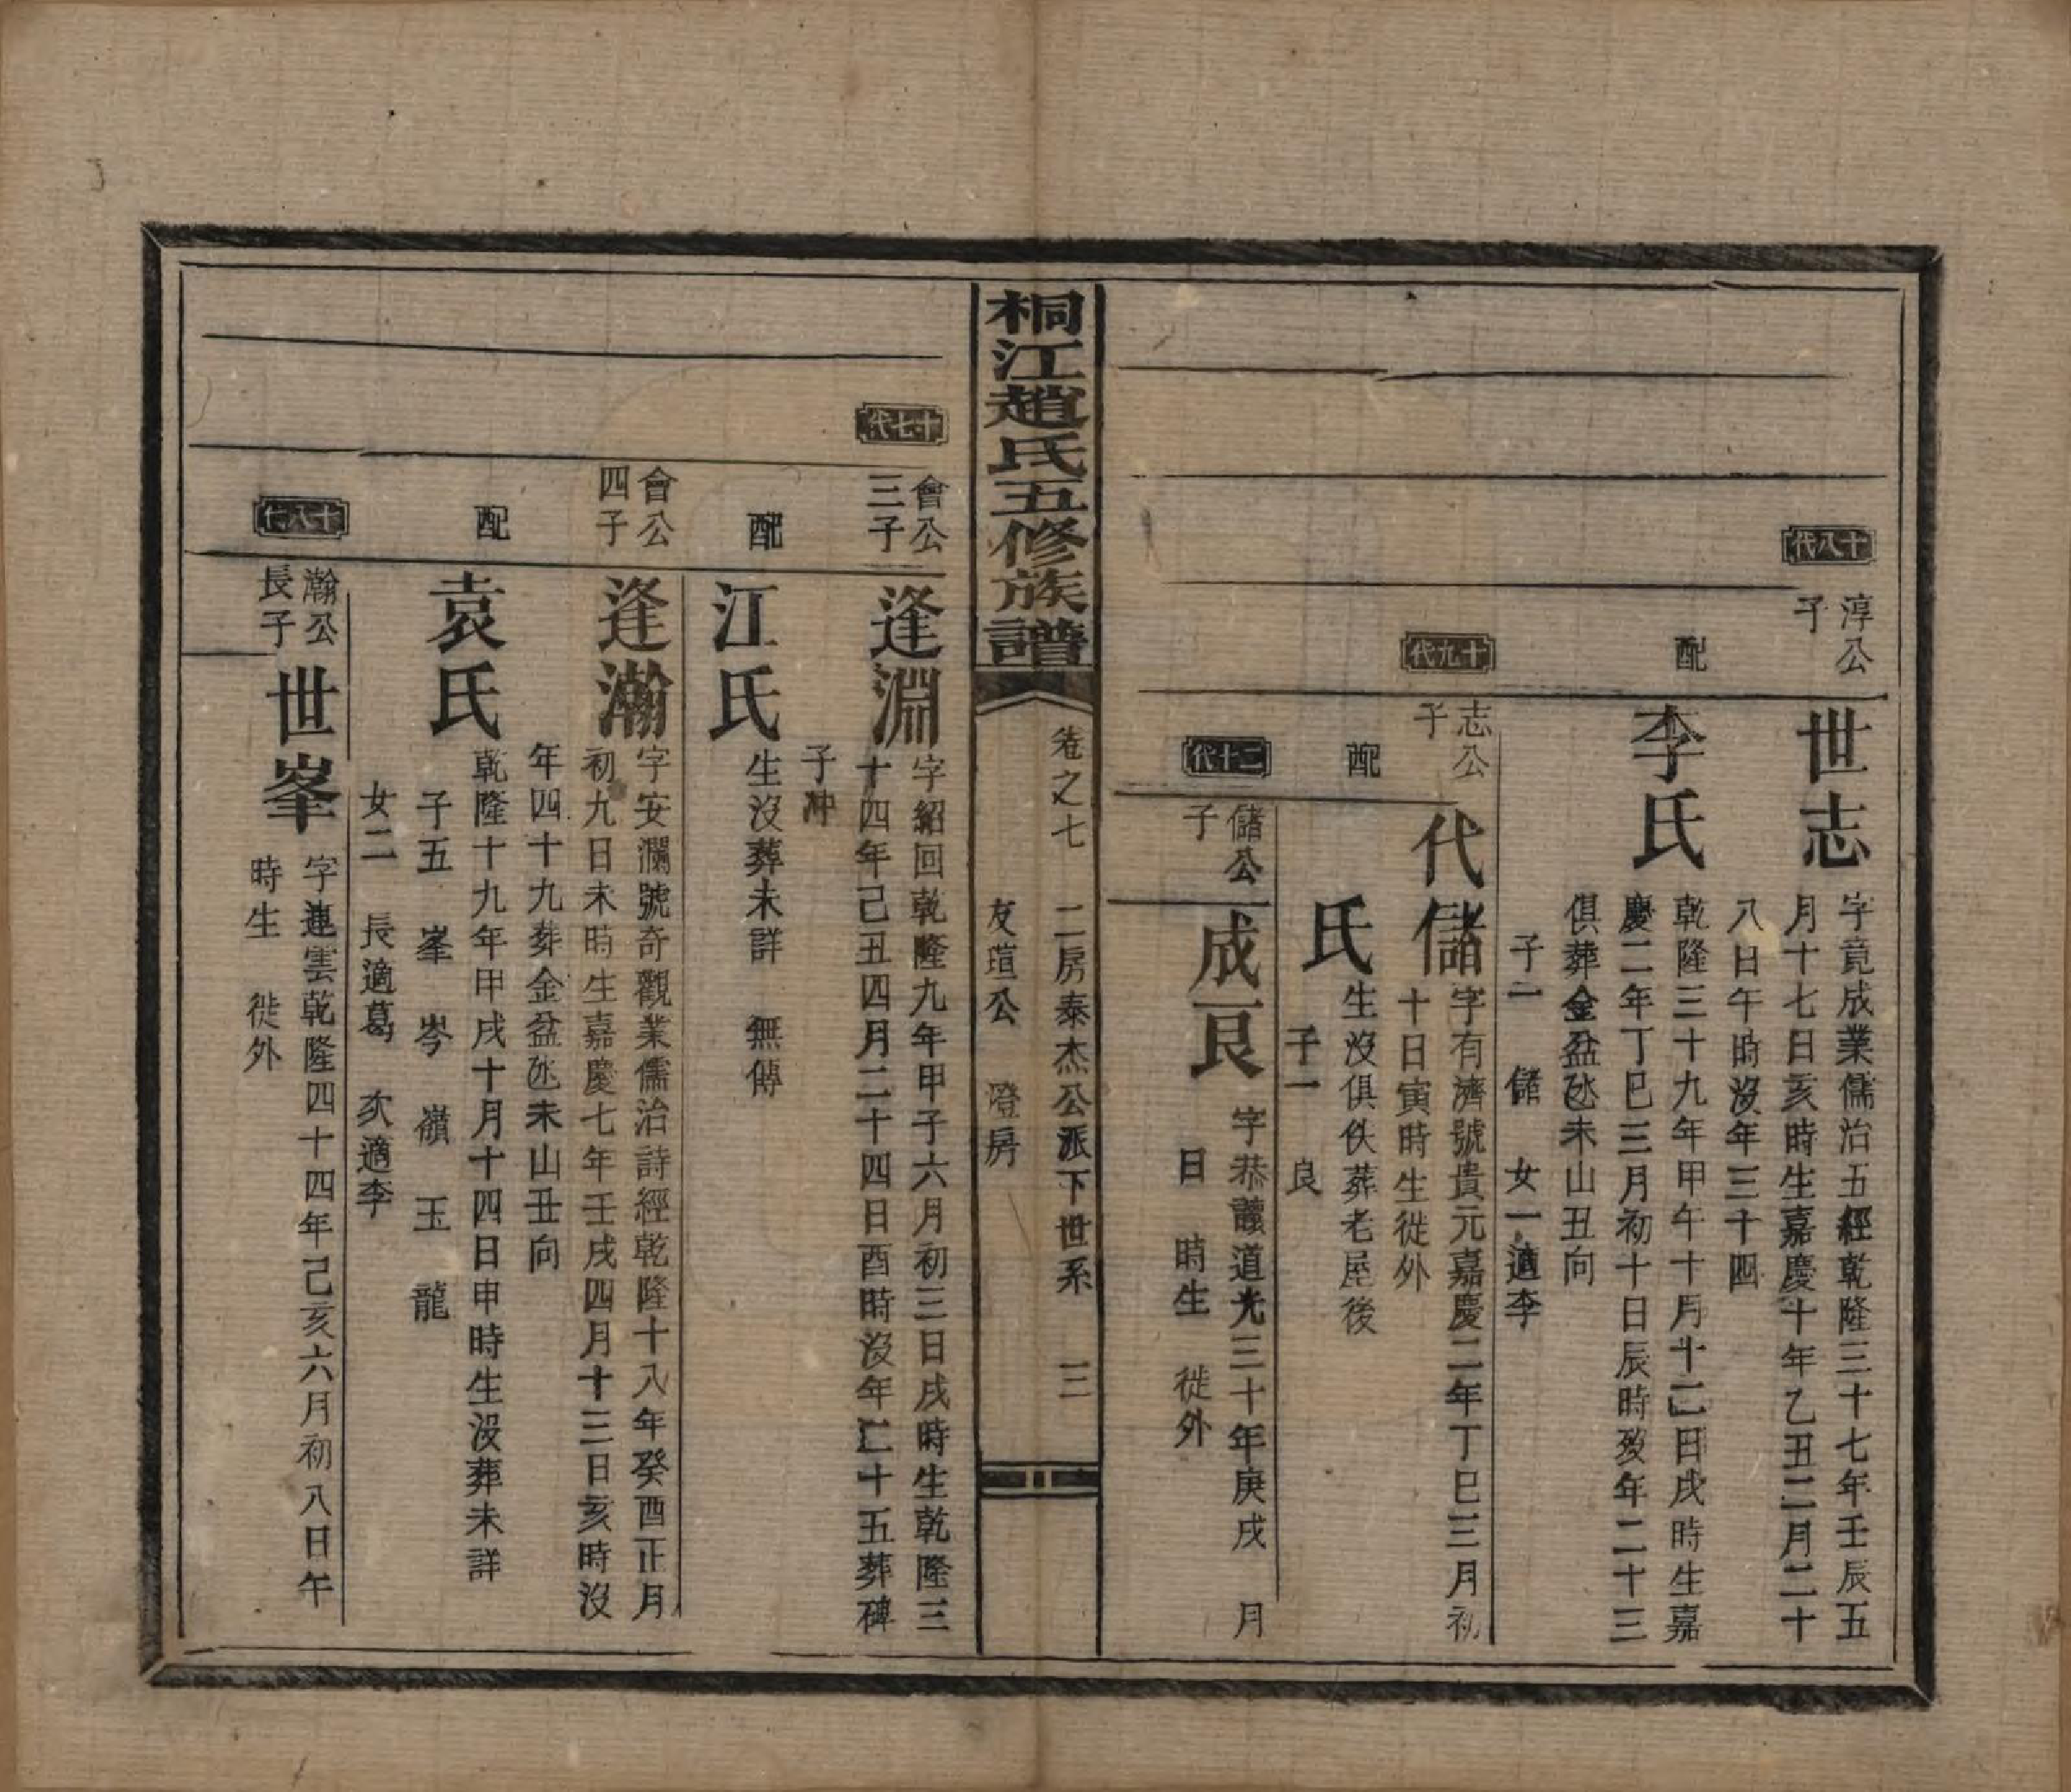 十八代
淳公
子
世志
字竟成業儒治五經乾隆三十七年壬辰五
月十七日亥時生嘉慶十年乙丑二月二十
八日午時沒年三十四
配
李氏
乾隆三十九年甲午十月十二日戌時生嘉
慶二年丁巳三月初十日辰時歿年二十三
俱葬金盆氹未山丑向
子一 儲 女一適李
十九代
志公
子
代儲
字有濟號貴元嘉慶二年丁巳三月初
十日寅時生徙外
配
氏
生沒俱佚葬老屋後
子一 良
二十代
儲公
子
成良
字恭 道光三十年庚戌 月
日 時生 徙外
桐江趙氏五修族譜
卷之七 二房泰杰公派下世系 三
友瑄公 澄房
十七代
會公
三子
逢淵
字紹回乾隆九年甲子六月初三日戌時生乾隆三
十四年己丑四月二十四日酉時沒年二十五葬碑
子冲
配
江氏
生沒葬未詳 無傳
會公
四子
逢瀚
字安瀾號奇觀業儒治詩經乾隆十八年癸酉正月
初九日未時生嘉慶七年壬戌四月十三日亥時沒
年四十九葬金盆氹未山丑向
配
袁氏
乾隆十九年甲戌十月十四日申時生沒葬未詳
子五 峯 岑 嶺 玉 龍
女二 長適葛 次適李
十八代
瀚公
長子
世峯
字連雲乾隆四十四年己亥六月初八日午
時生 徙外